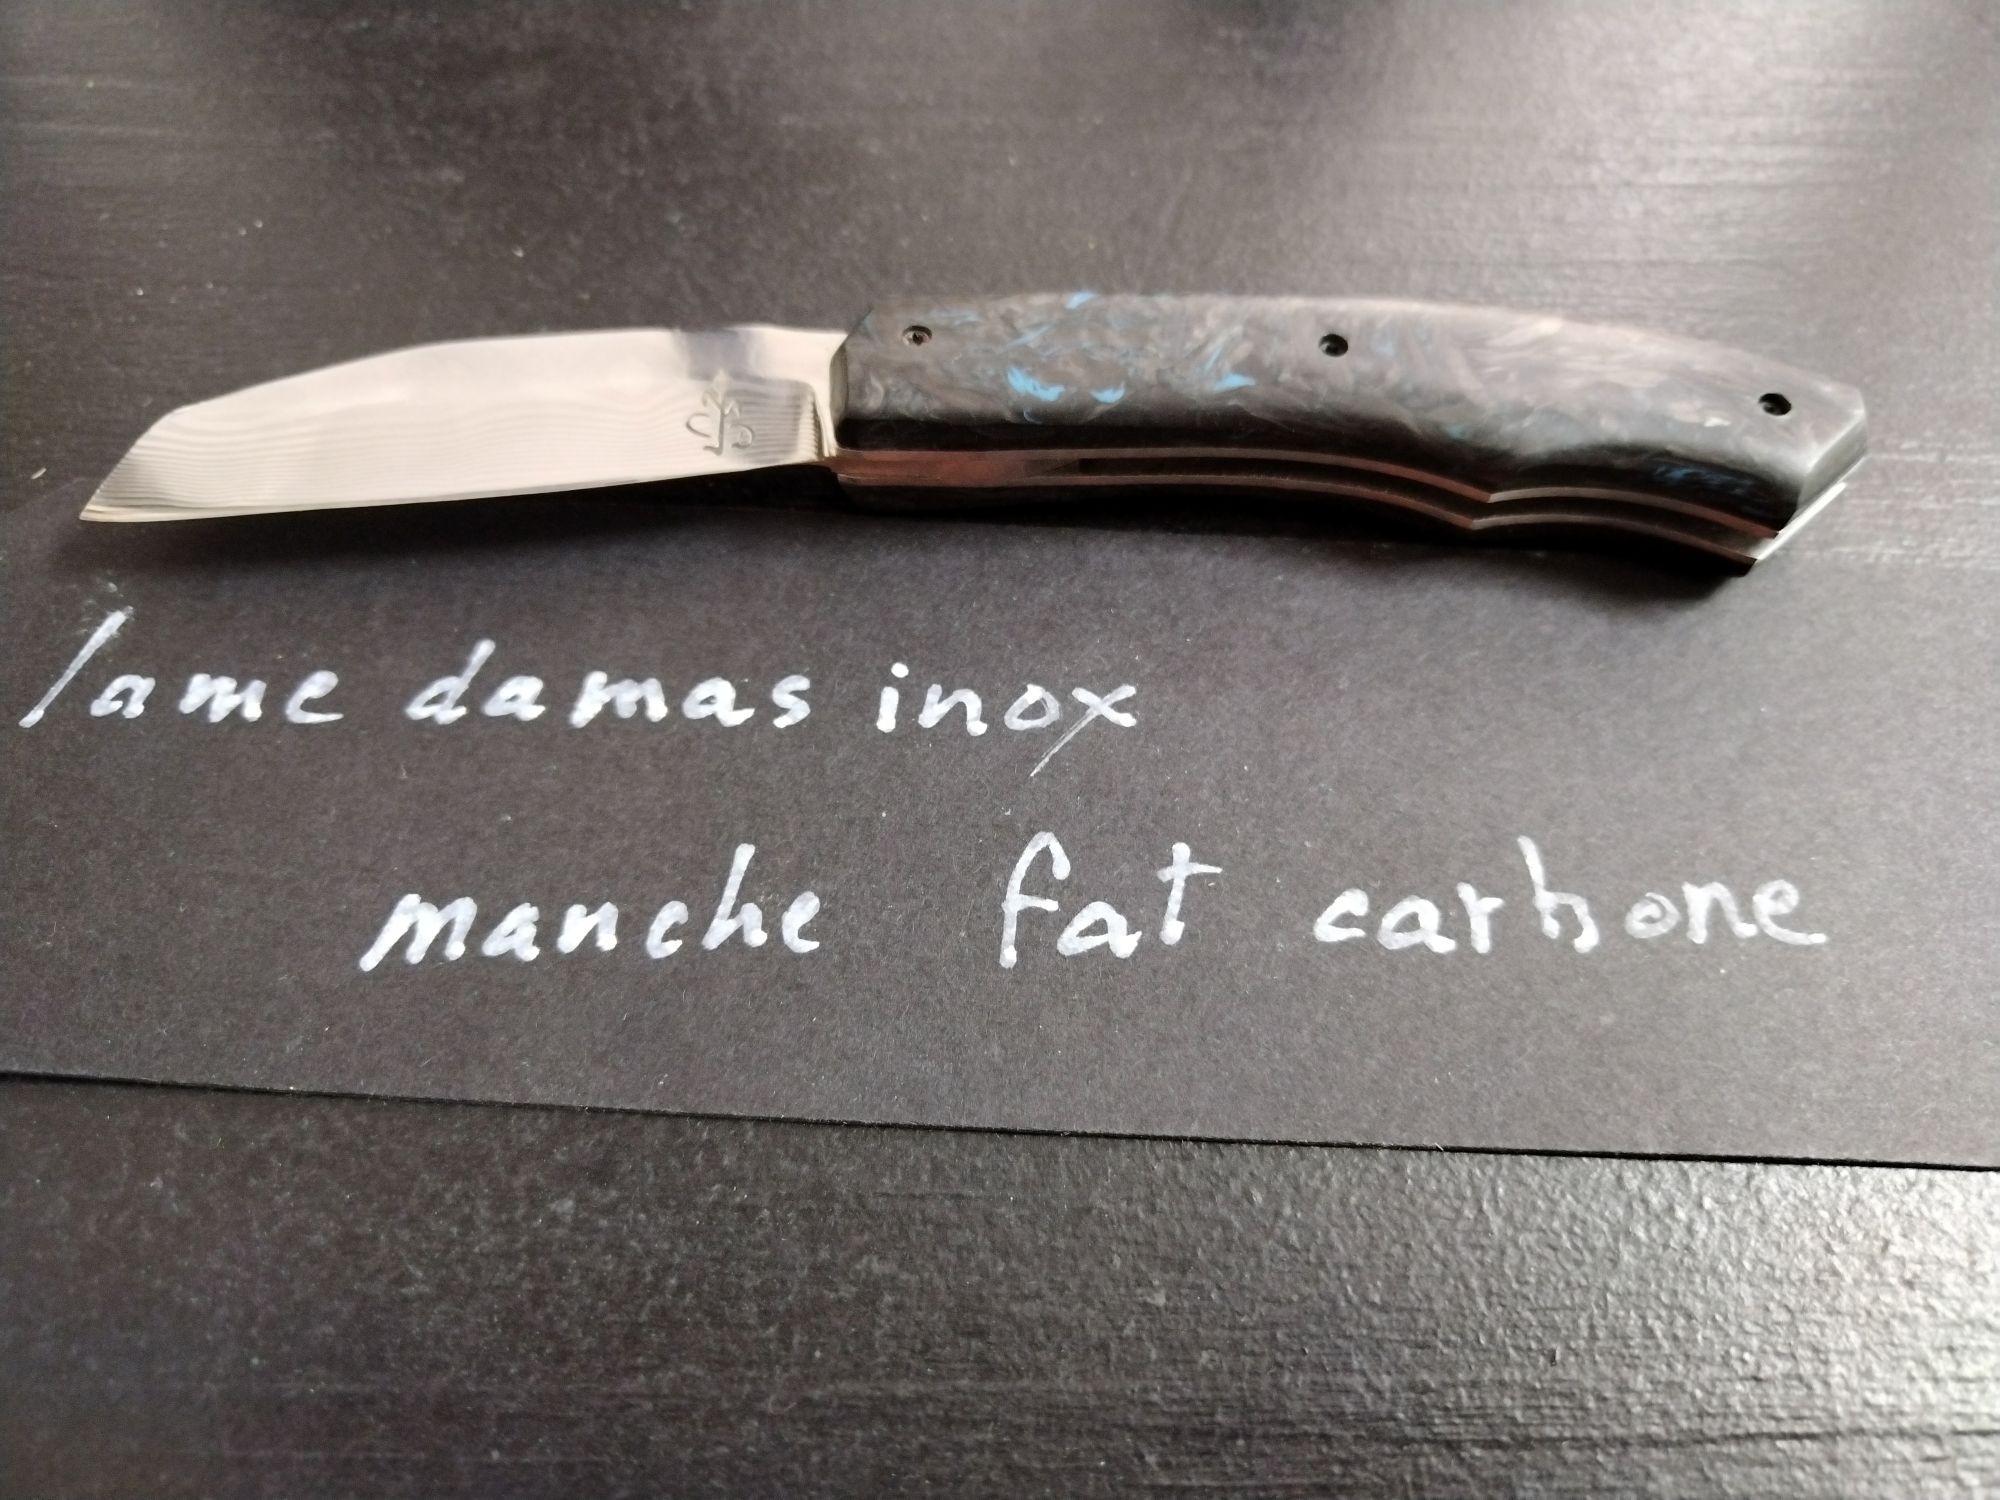 lame damas inox
manche fat carbone